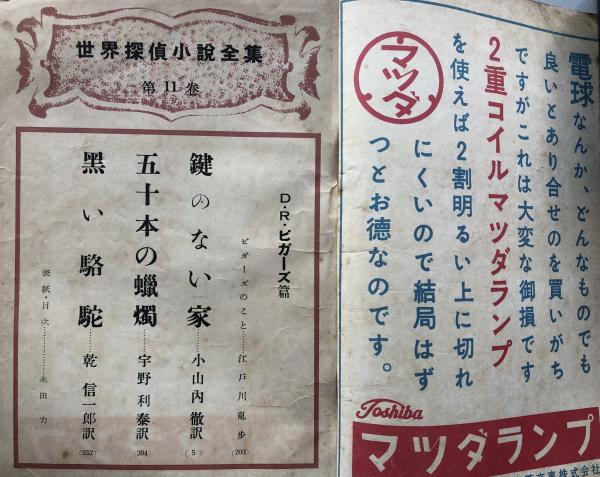 世界探偵小說全集
第11巻
D・R・ビガーズ篇
ビガーズのこと……江戸川亂步
(203)
鍵のない家……小山內徹訳
(5)
五十本の蠟燭……宇野利泰訳
(204)
黑い駱駝……乾信一郎訳
(252)
表紙・目次……永田力
電球なんか、どんなものでも
良いとあり合せのを買いがち
ですがこれは大変な御損です
2重コイルマツダランプ
を使えば2割明るい上に切れ
にくいので結局はず
つとお德なのです。
マツダ
Toshiba
マツダランプ
株式会社